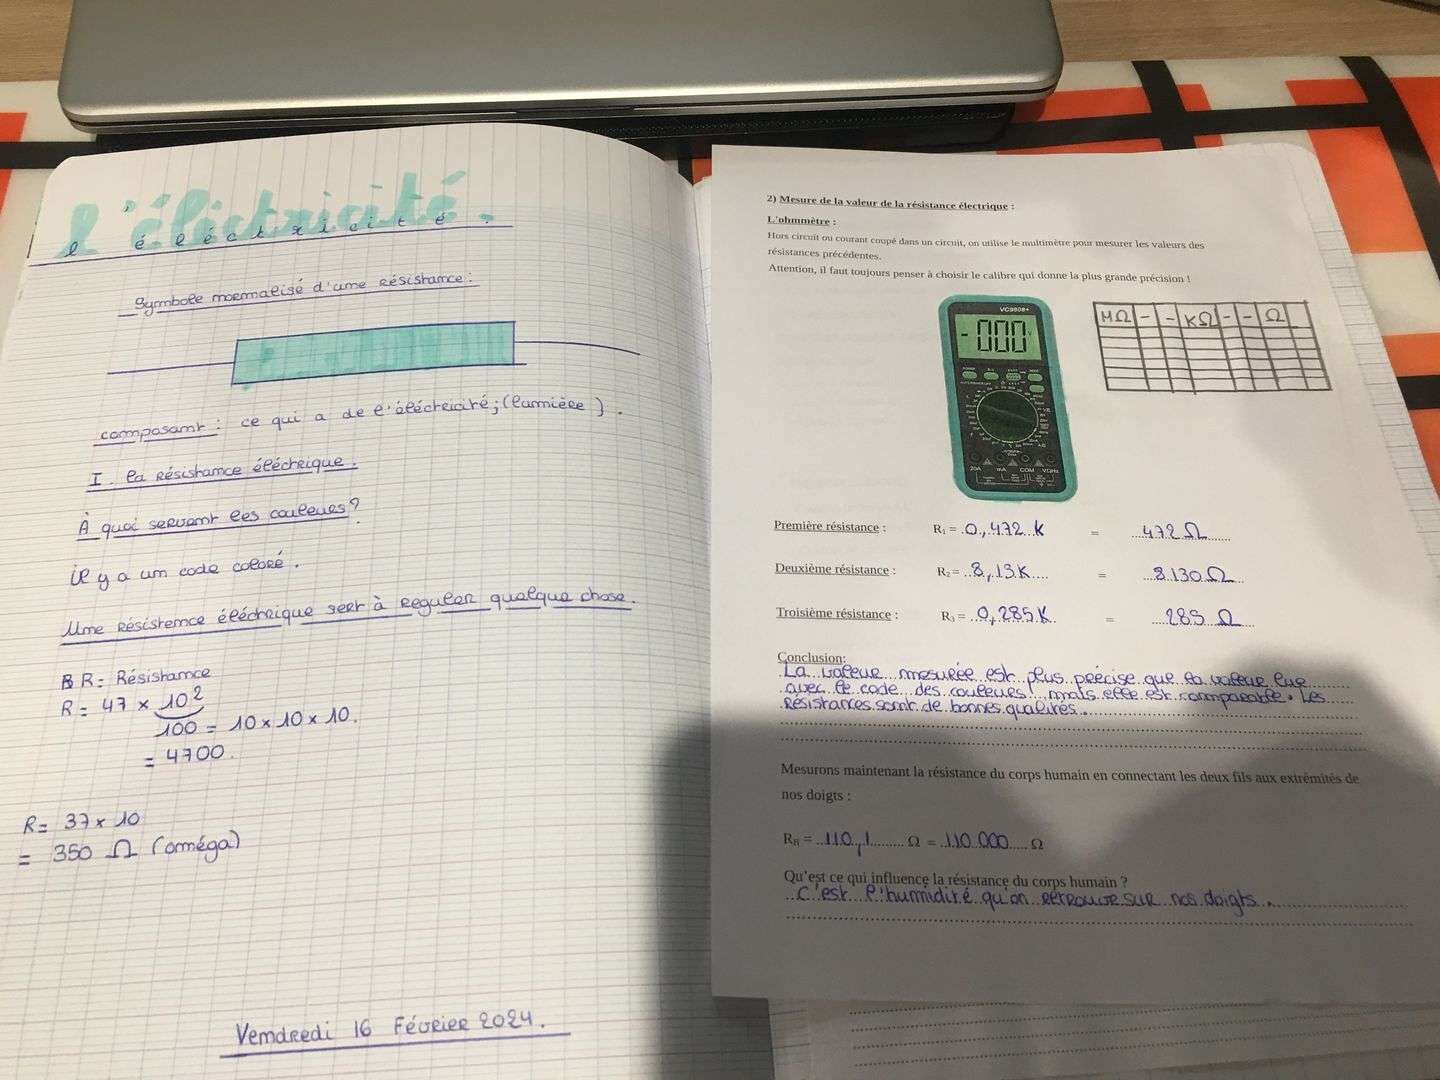 l'éléctricité.
Symbole normalisé d'une résistance :
composant : ce qui a de l'éléctricité ; (lumière).
I. la résistance éléctrique.
À quoi servent les couleurs ?
il y a un code coloré.
Une résistence éléctrique sert à reguler quelque chose.
R = Résistance
R = 47 × 10²
100 = 10 × 10 × 10.
= 4700.
R = 37 × 10
= 350 Ω (oméga)
Vendredi 16 Février 2024.
2) Mesure de la valeur de la résistance électrique :
L'ohmmètre :
Hors circuit ou courant coupé dans un circuit, on utilise le multimètre pour mesurer les valeurs des
résistances précédentes.
Attention, il faut toujours penser à choisir le calibre qui donne la plus grande précision !
VC9808+
-000
20A mA COM VΩHz
MΩ - - KΩ - - Ω
Première résistance : R₁ = 0,472 K = 472 Ω
Deuxième résistance : R₂ = 8,13K = 8130 Ω
Troisième résistance : R₃ = 0,285K = 285 Ω
Conclusion:
La valeur mesurée est plus précise que la valeur lue
avec le code des couleurs ! mais elle est comparable. Les
résistances sont de bonnes qualités.
Mesurons maintenant la résistance du corps humain en connectant les deux fils aux extrémités de
nos doigts :
R_H = 110,1 Ω = 110 000 Ω
Qu'est ce qui influence la résistance du corps humain ?
C'est l'humidité qu'on retrouve sur nos doigts.